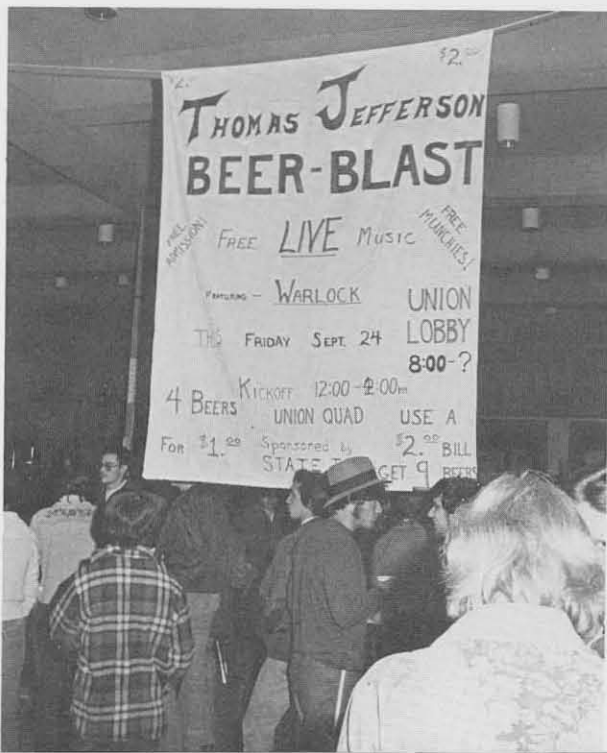 $2.00
$2.00
THOMAS JEFFERSON
BEER-BLAST
FREE ADMISSION!
FREE LIVE MUSIC
FREE MUNCHIES!
FEATURING - WARLOCK
UNION
LOBBY
8:00-?
THIS FRIDAY SEPT. 24
KICKOFF 12:00-2:00
UNION QUAD
4 BEERS
FOR $1.00
Sponsored by
STATE
USE A
$2.00 BILL
GET 9 BEERS